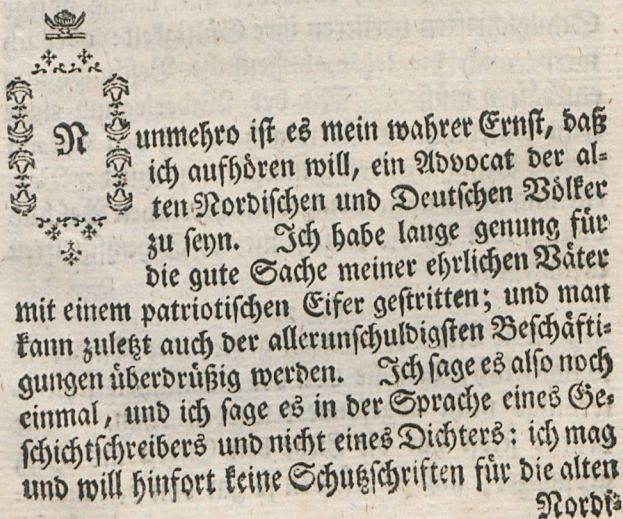 Nunmehro ist es mein wahrer Ernst, daß
ich aufhören will, ein Advocat der al-
ten Nordischen und Deutschen Völker
zu seyn. Ich habe lange genung für
die gute Sache meiner ehrlichen Väter
mit einem patriotischen Eifer gestritten; und man
kann zuletzt auch der allerunschuldigsten Beschäfti-
gungen überdrüßig werden. Ich sage es also noch
einmal, und ich sage es in der Sprache eines Ge-
schichtschreibers und nicht eines Dichters: ich mag
und will hinfort keine Schutzschriften für die alten
Nordi-